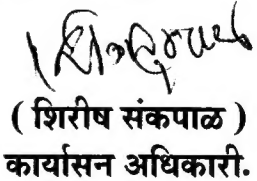 ( शिरीष संकपाळ )
कार्यासन अधिकारी.